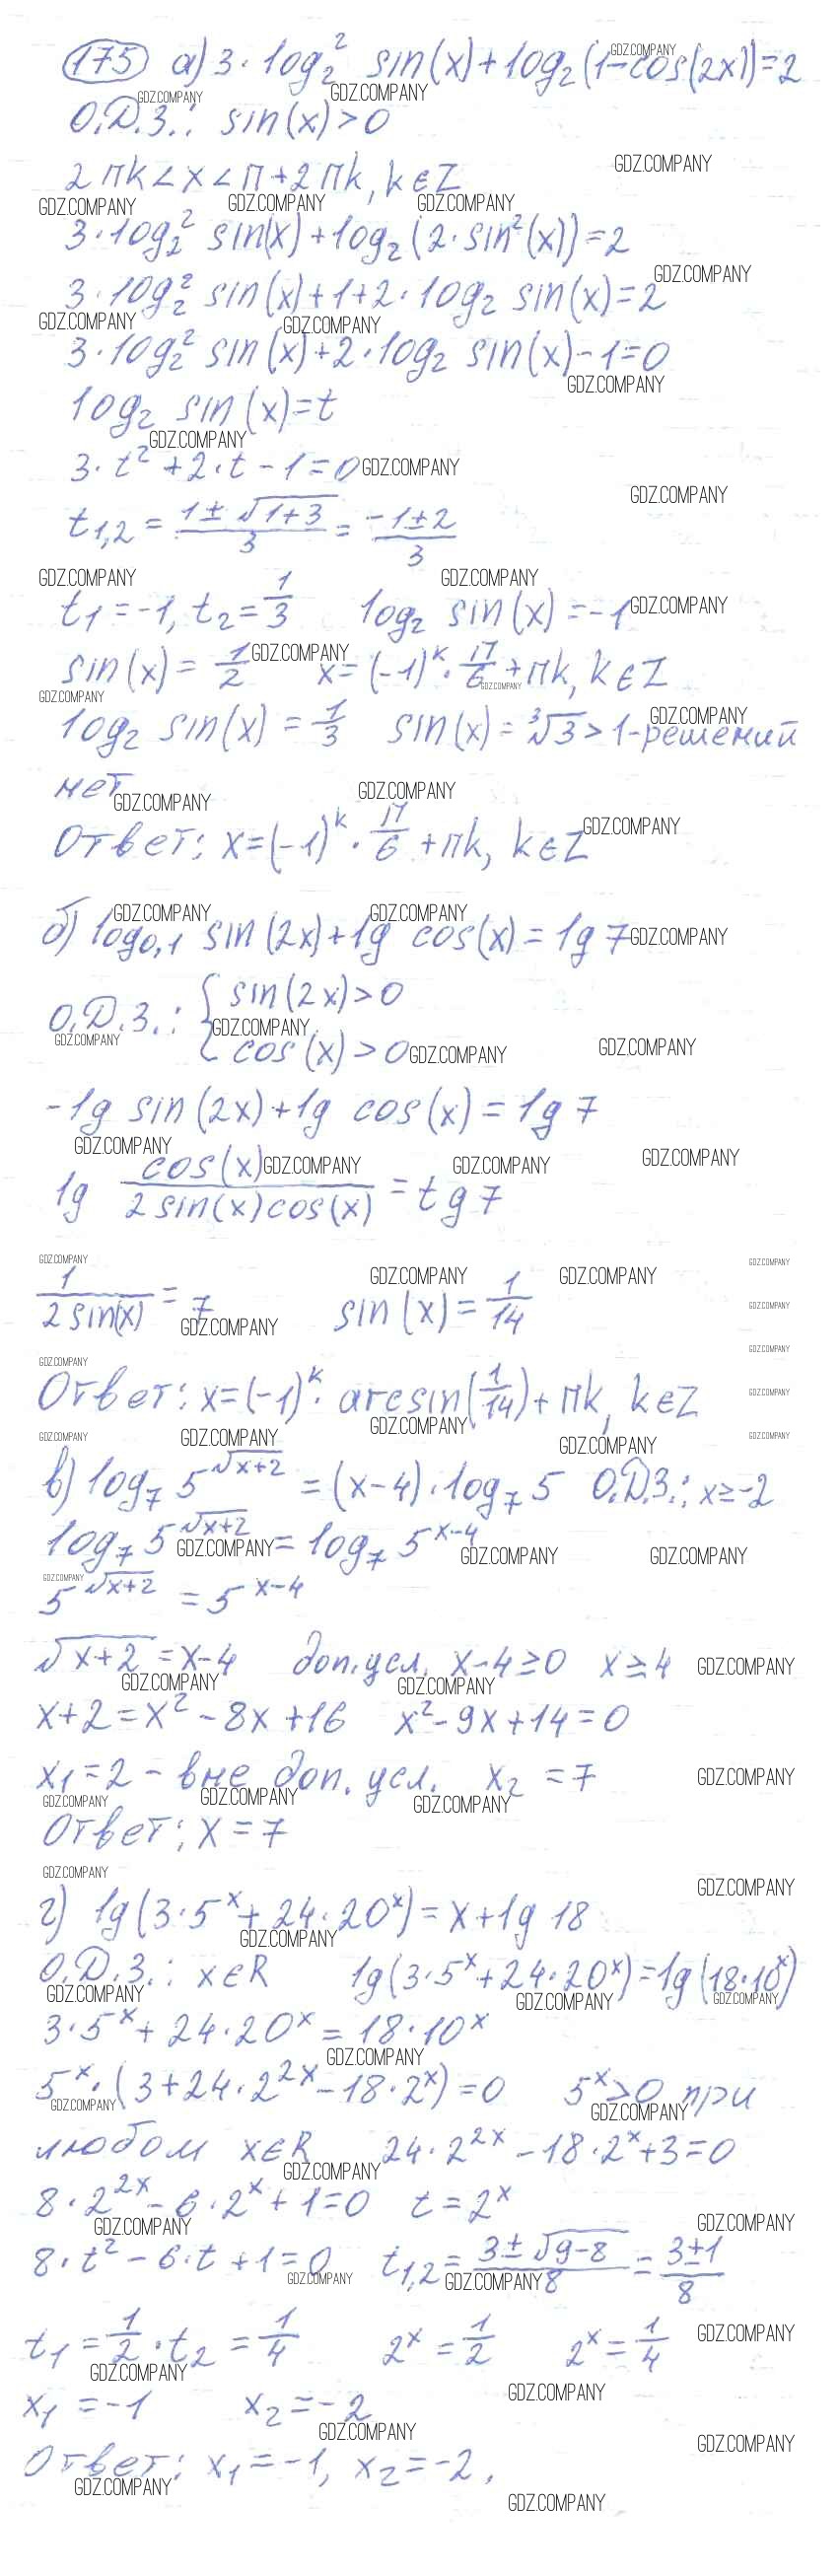 175 а) 3·log₂² sin(x)+log₂(1-cos(2x))=2
О.Д.З.: sin(x)>0
2πk<x<π+2πk, k∈Z
3·log₂² sin(x)+log₂(2·sin²(x))=2
3·log₂² sin(x)+1+2·log₂ sin(x)=2
3·log₂² sin(x)+2·log₂ sin(x)-1=0
log₂ sin(x)=t
3·t²+2·t-1=0
t₁,₂ = (1±√(1+3))/3 = (-1±2)/3
t₁=-1, t₂=1/3 log₂ sin(x)=-1
sin(x)=1/2 x=(-1)ᵏ·π/6+πk, k∈Z
log₂ sin(x)=1/3 sin(x)=³√3>1-решений
нет
Ответ: x=(-1)ᵏ·π/6+πk, k∈Z
б) log₀,₁ sin(2x)+lg cos(x)=lg 7
О.Д.З.: { sin(2x)>0
cos(x)>0
-lg sin(2x)+lg cos(x)=lg 7
lg cos(x)/(2sin(x)cos(x)) = tg 7
1/(2sin(x)) = 7 sin(x)=1/14
Ответ: x=(-1)ᵏ·arcsin(1/14)+πk, k∈Z
в) log₇ 5^√(x+2) = (x-4)·log₇ 5 О.Д.З.: x≥-2
log₇ 5^√(x+2) = log₇ 5^(x-4)
5^√(x+2) = 5^(x-4)
√(x+2)=x-4 доп.усл. x-4≥0 x≥4
x+2=x²-8x+16 x²-9x+14=0
x₁=2 - вне доп. усл. x₂=7
Ответ: x=7
г) lg(3·5ˣ+24·20ˣ)=x+lg 18
О.Д.З.: x∈R lg(3·5ˣ+24·20ˣ)=lg(18·10ˣ)
3·5ˣ+24·20ˣ=18·10ˣ
5ˣ·(3+24·2²ˣ-18·2ˣ)=0 5ˣ>0 при
любом x∈R 24·2²ˣ-18·2ˣ+3=0
8·2²ˣ-6·2ˣ+1=0 t=2ˣ
8·t²-6·t+1=0 t₁,₂=(3±√(9-8))/8=(3±1)/8
t₁=1/2·t₂=1/4 2ˣ=1/2 2ˣ=1/4
x₁=-1 x₂=-2
Ответ: x₁=-1, x₂=-2.
GDZ.COMPANY